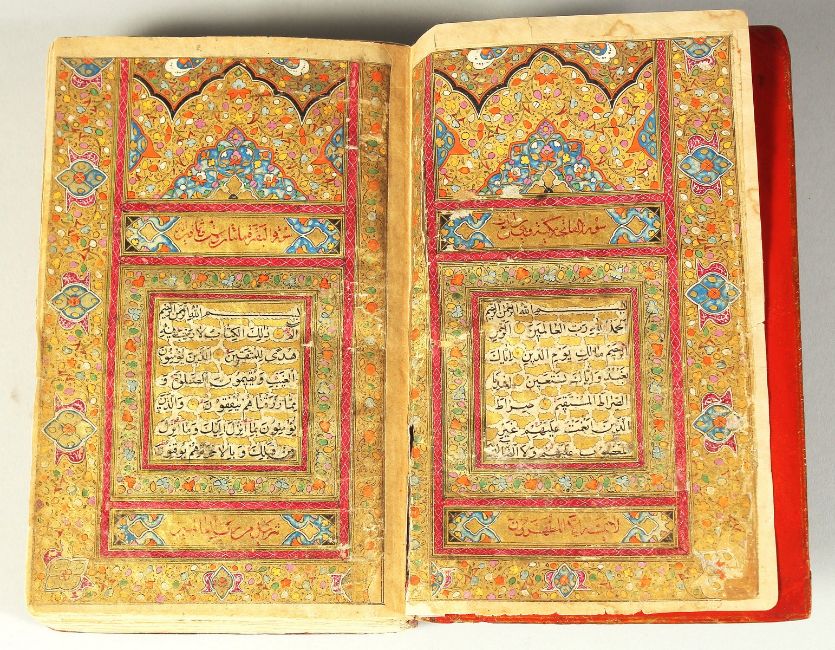 سورة الفاتحة
بسم الله الرحمن الرحيم
الحمد لله رب العالمين الرحمن
الرحيم مالك يوم الدين اياك
نعبد واياك نستعين اهدنا
الصراط المستقيم صراط
الذين انعمت عليهم غير
المغضوب عليهم ولا الضالين
لا يمسه الا المطهرون
سورة البقرة
بسم الله الرحمن الرحيم
الم ذلك الكتاب لا ريب فيه
هدى للمتقين الذين يؤمنون
بالغيب ويقيمون الصلوة و
مما رزقناهم ينفقون والذين
يؤمنون بما انزل اليك وما انزل
من قبلك وبالاخرة هم يوقنون
تنزيل من رب العالمين